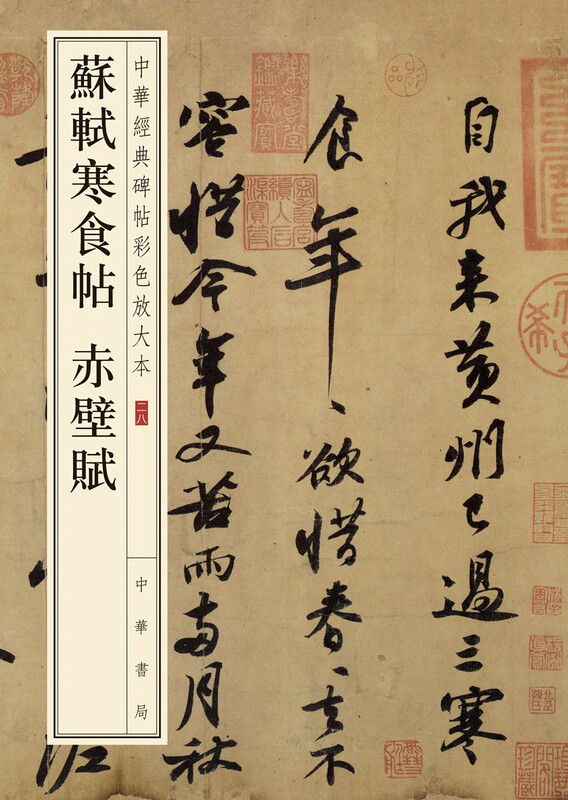 自我来黄州已過三寒
食年、欲惜春、去不
容惜今年又苦雨兩月秋
中華經典碑帖彩色放大本
二八
中華書局
蘇軾寒食帖 赤壁賦